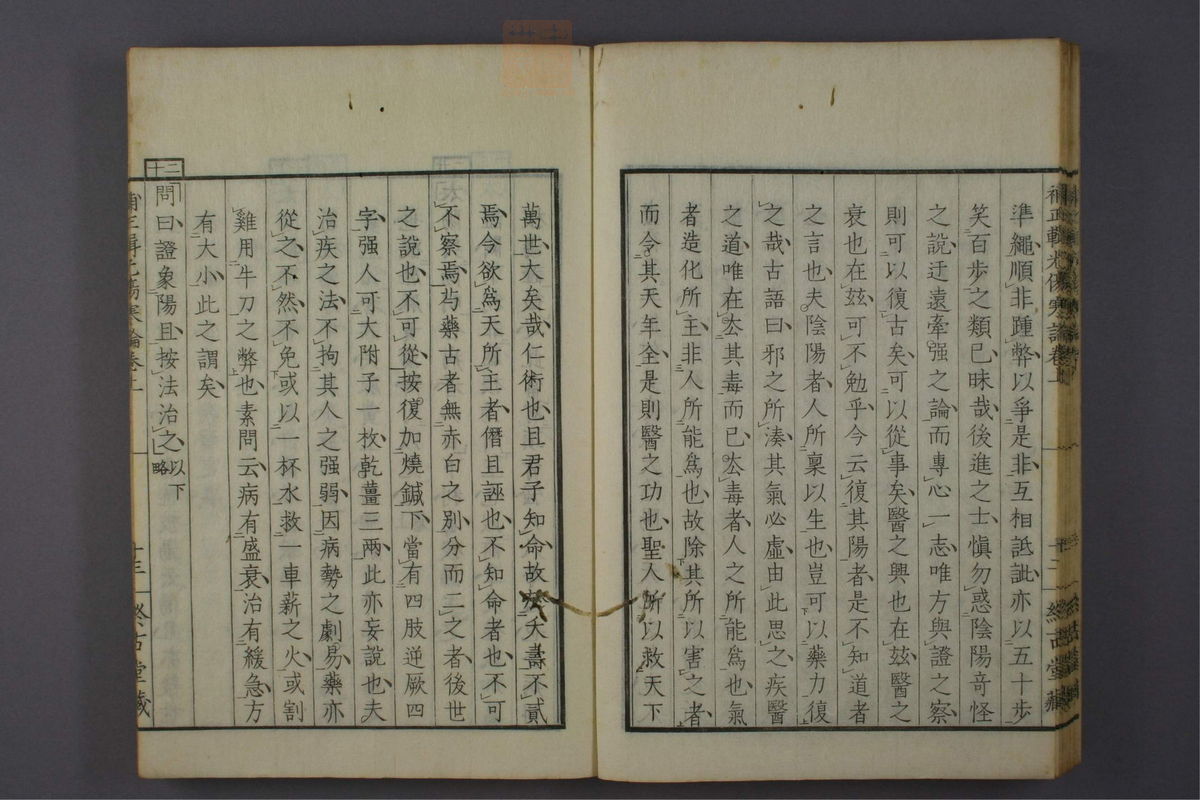 準繩順非踵弊以爭是非互相詆訿亦以五十步
笑百步之類已昧哉後進之士愼勿惑陰陽奇怪
之說迂遠牽强之論而專心一志唯方與證之察
則可以復古矣可以從事矣醫之興也在玆醫之
衰也在玆可不勉乎今云復其陽者是不知道者
之言也夫陰陽者人所稟以生也豈可以藥力復
之哉古語曰邪之所湊其氣必虛由此思之疾醫
之道唯在厺其毒而已厺毒者人之所能爲也氣
者造化所主非人所能爲也故除其所以害之者
而令其天年全是則醫之功也聖人所以救天下
萬世大矣哉仁術也且君子知命故殀夭壽不貳
焉今欲爲天所主者僭且誣也不知命者也不可
不察焉芍藥古者無赤白之別分而二之者後世
之說也不可從按復加燒鍼下當有四肢逆厥四
字强人可大附子一枚乾薑三兩此亦妄說也夫
治疾之法不拘其人之强弱因病勢之劇易藥亦
從之不然不免或以一杯水救一車薪之火或割
雞用牛刀之弊也素問云病有盛衰治有緩急方
有大小此之謂矣
二十
問曰證象陽旦按法治之以下略
十三
終古堂藏